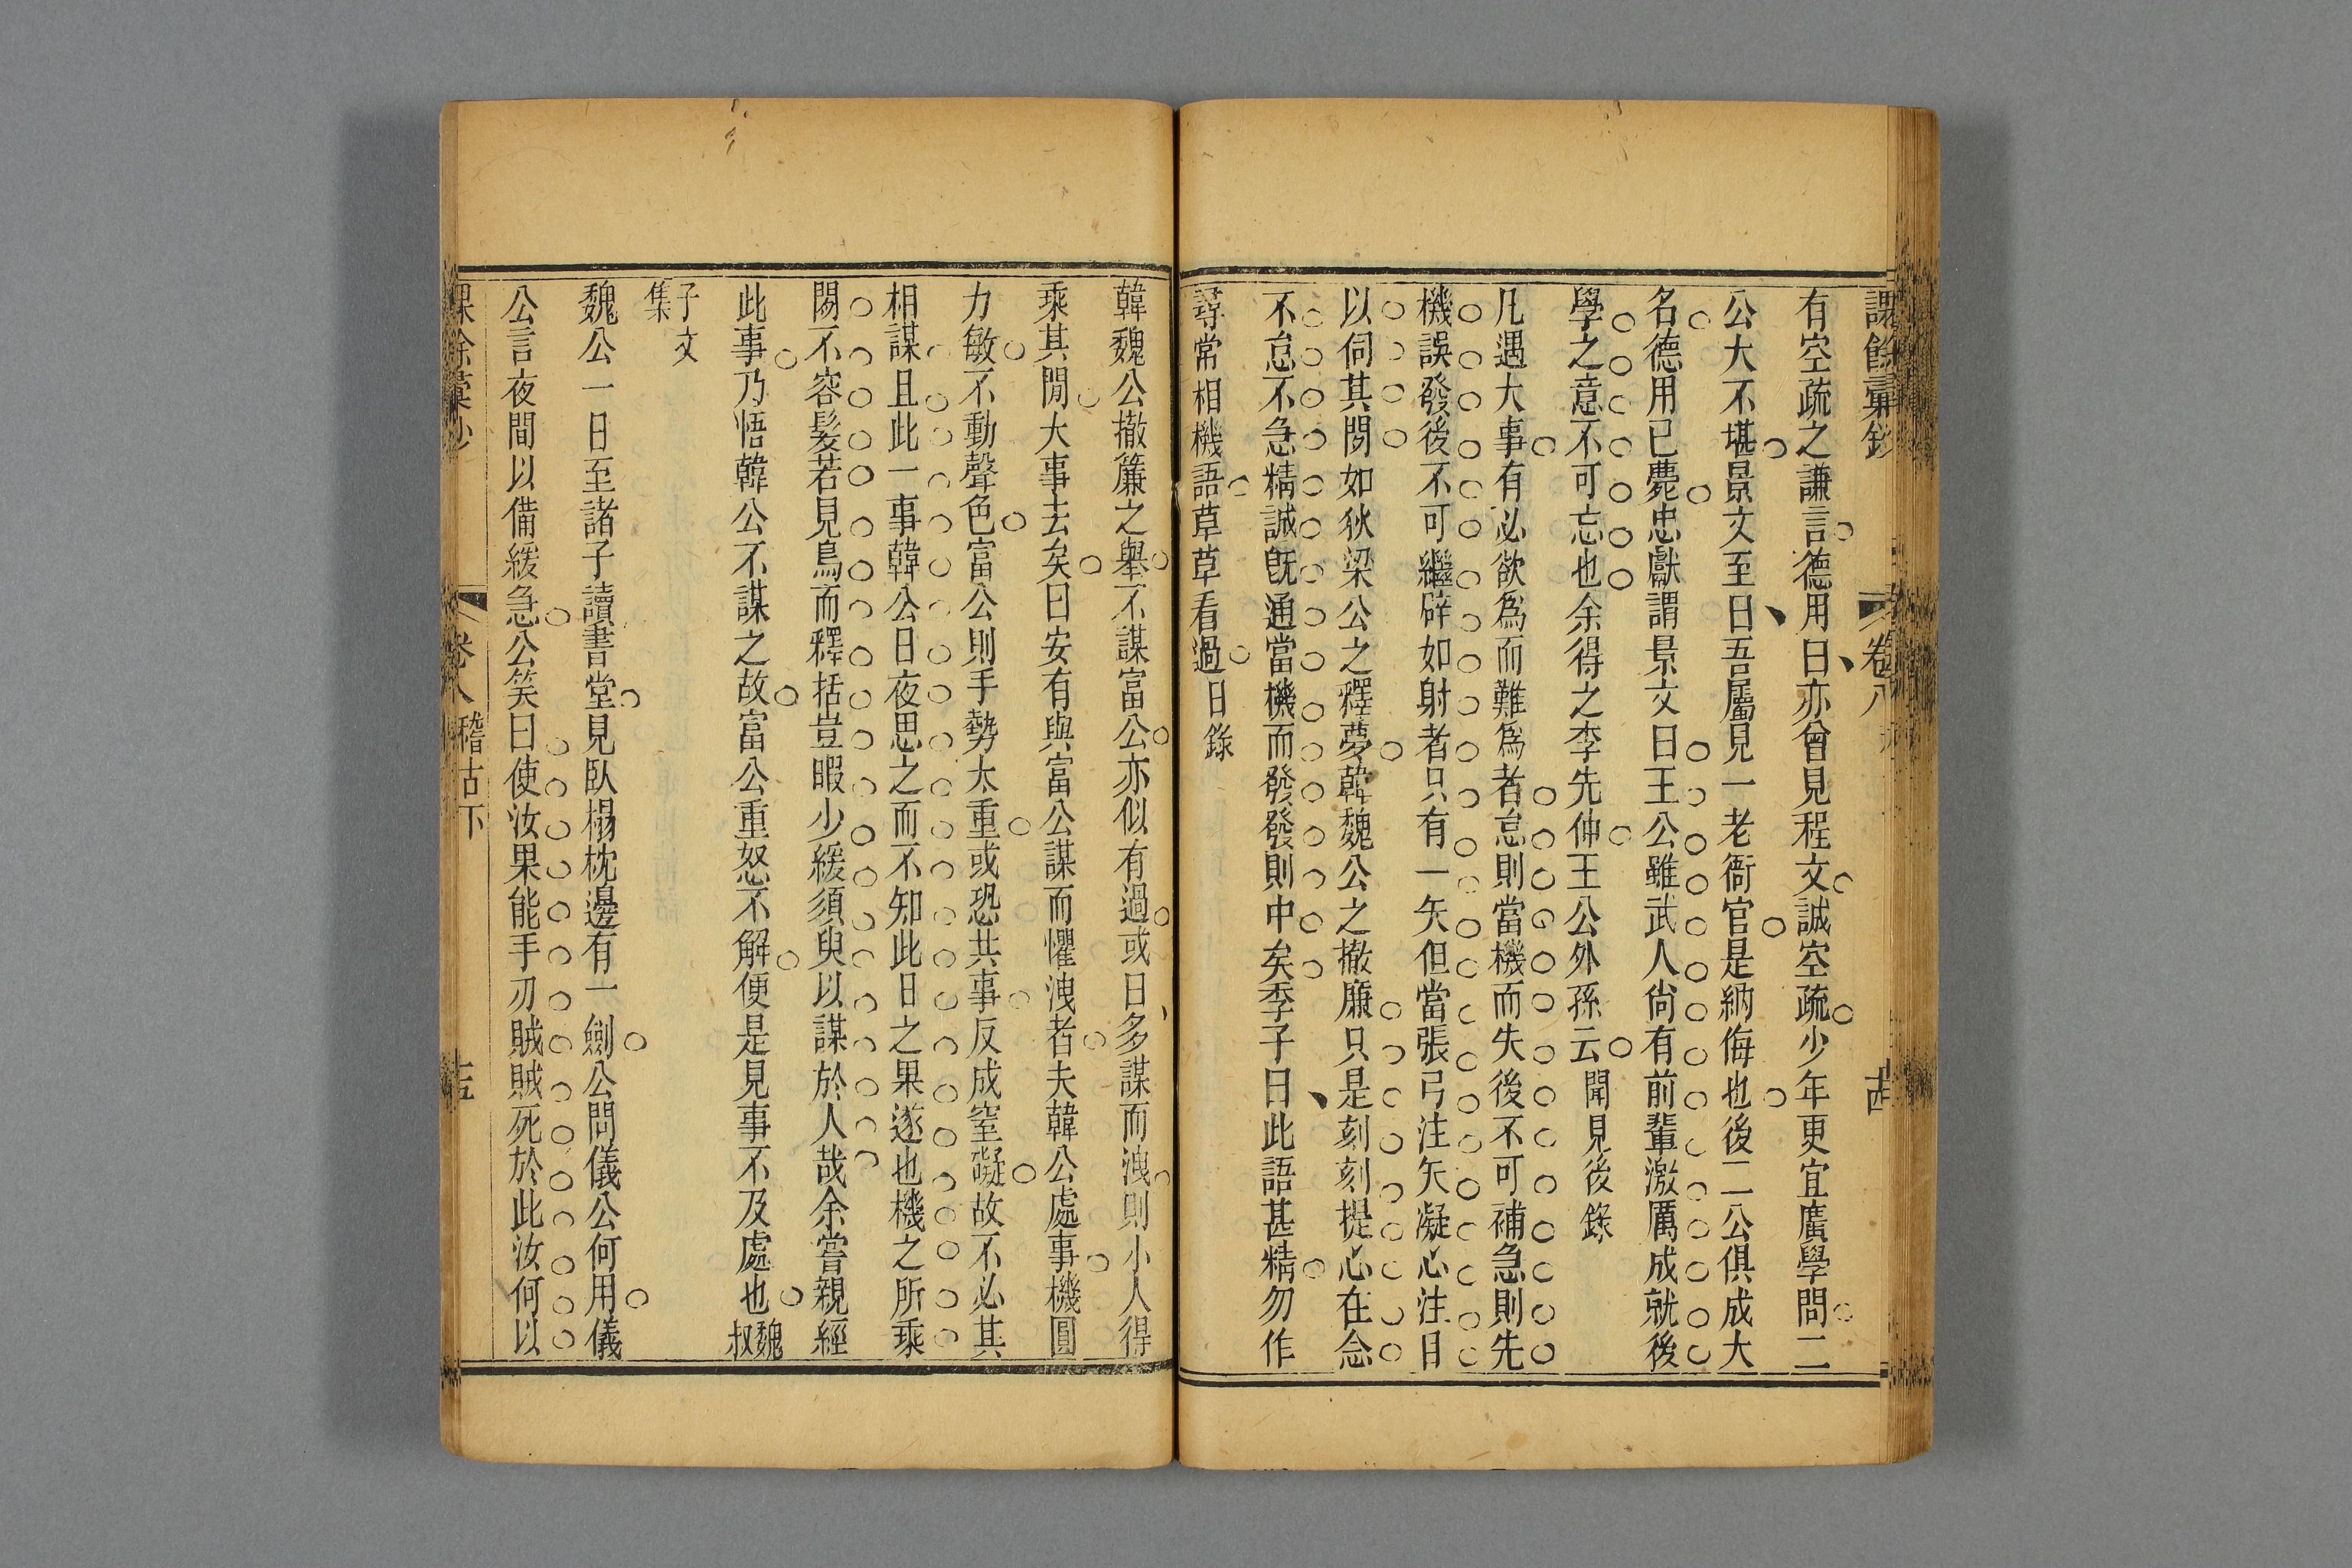 課餘彙鈔 卷八 古
有空疏之謙言德用曰亦曾見程文誠空疏少年更宜廣學問二
公大不堪景文至曰吾屬見一老衙官是納侮也後二公俱成大
名德用已薨忠獻謂景文曰王公雖武人尙有前輩激厲成就後
學之意不可忘也余得之李先仲王公外孫云 聞見後錄
凡遇大事有必欲爲而難爲者怠則當機而失後不可補急則先
機誤發後不可繼辟如射者只有一矢但當張弓注矢凝心注目
以伺其閒如狄梁公之釋夢韓魏公之撤廉只是刻刻提心在念
不怠不急精誠旣通當機而發發則中矣季子曰此語甚精勿作
尋常相機語草草看過 日錄
韓魏公撤簾之舉不謀富公亦似有過或曰多謀而洩則小人得
乘其閒大事去矣曰安有與富公謀而懼洩者夫韓公處事機圓
力敏不動聲色富公則手勢太重或恐共事反成窒礙故不必其
相謀且此一事韓公日夜思之而不知此日之果遂也機之所乘
閒不容髮若見鳥而釋括豈暇少緩須臾以謀於人哉余嘗親經
此事乃悟韓公不謀之故富公重怒不解便是見事不及處也 魏叔
子文集
魏公一日至諸子讀書堂見臥榻枕邊有一劍公問儀公何用儀
公言夜間以備緩急公笑曰使汝果能手刃賊賊死於此汝何以
課餘彙鈔 卷八 稽古下 十五